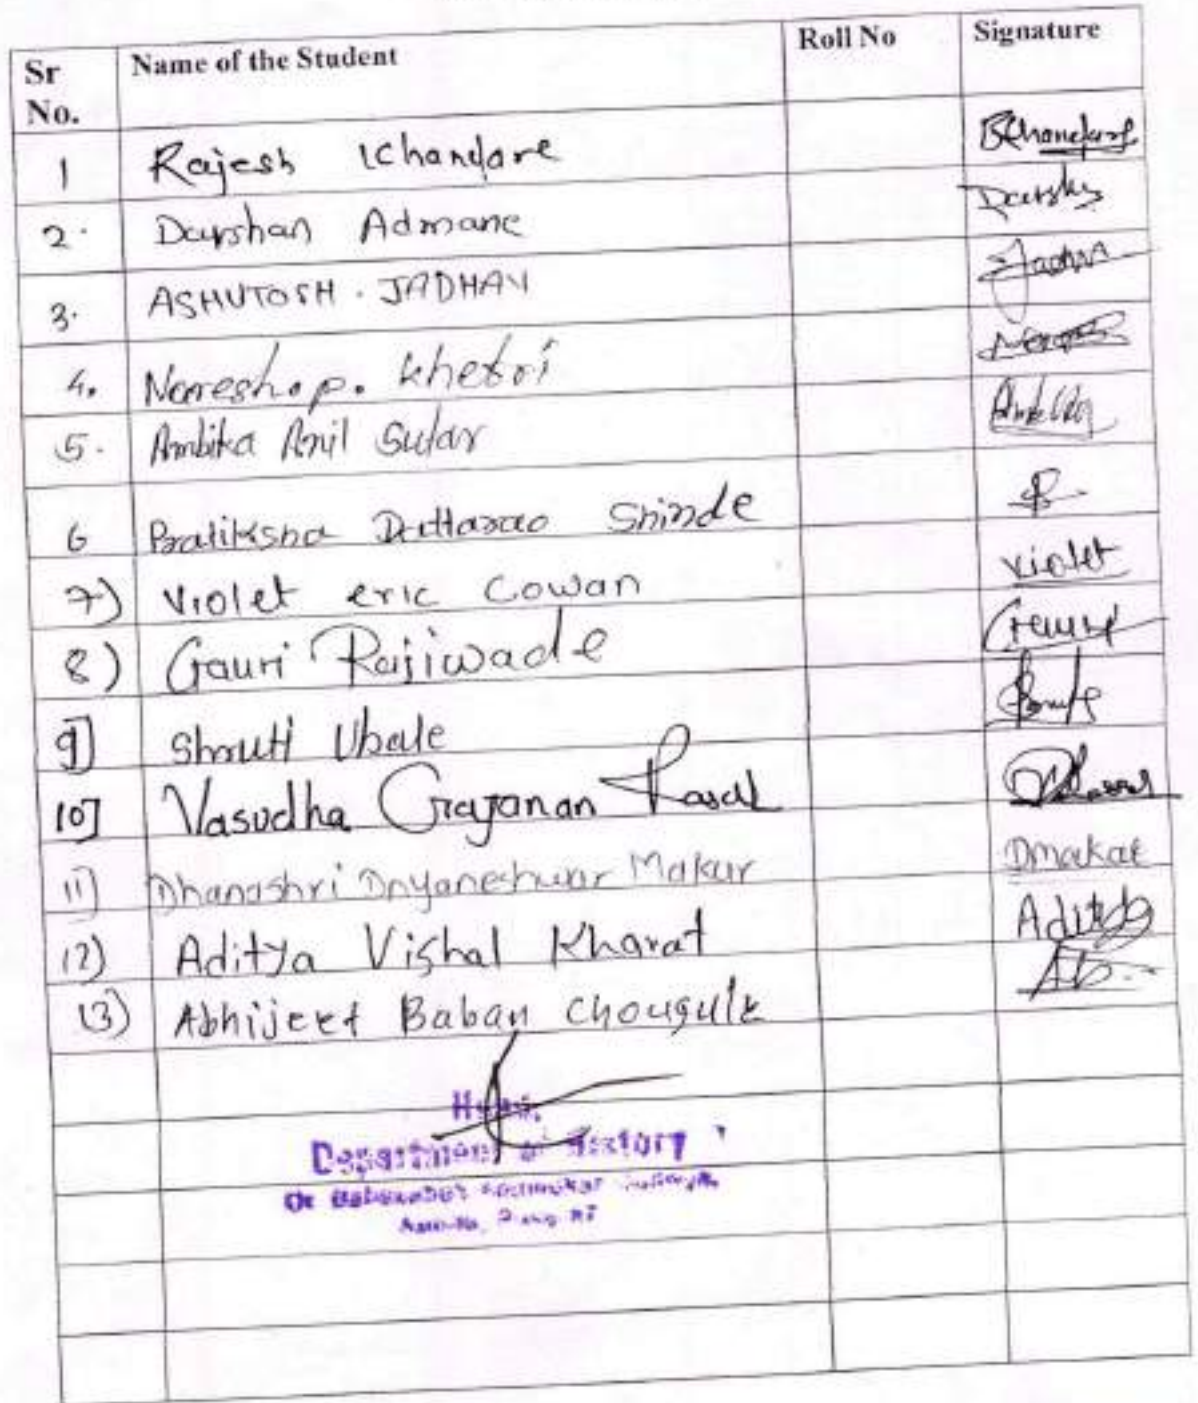 Sr No. Name of the Student Roll No Signature
1 Rajesh Khandare RKhandare
2. Darshan Admane
3. ASHUTOSH. JADHAV
4. Naresh. p. khetri
5. Ambika Anil Sutar
6 Pratiksha Dattarao Shinde
7) Violet eric Cowan violet
8) Gauri Rajiwade
9] Shruti Ubale
10] Vasudha Gajanan Rasal
11) Dhanashri Dnyaneshwar Makar Dmakar
12) Aditya Vishal Kharat
13) Abhijeet Baban Chougule
Head,
Department of History
Dr Babasaheb Ambedkar